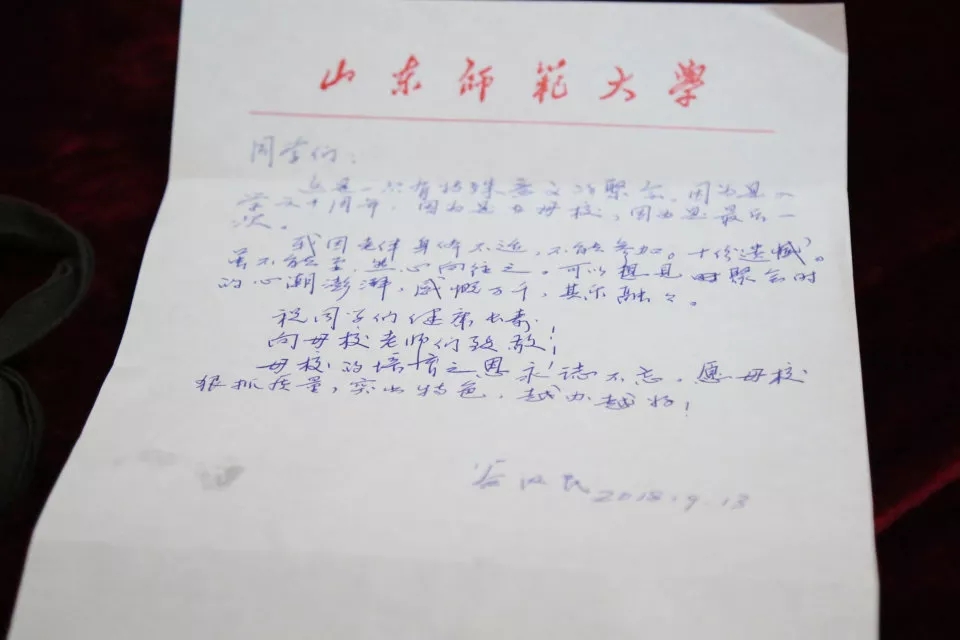 山东师范大学
同学们：
这是一次有特殊意义的聚会，因为是入
学六十周年，因为是在母校，因为是最后一
次。
我因老伴身体不适，不能参加。十分遗憾。
虽不能至，然心向往之。可以想见聚会时
的心潮澎湃，感慨万千，其乐融々。
祝同学们健康长寿！
向母校老师们致敬！
母校的培育之恩永志不忘，愿母校
狠抓质量，突出特色，越办越好！
2018.9.13